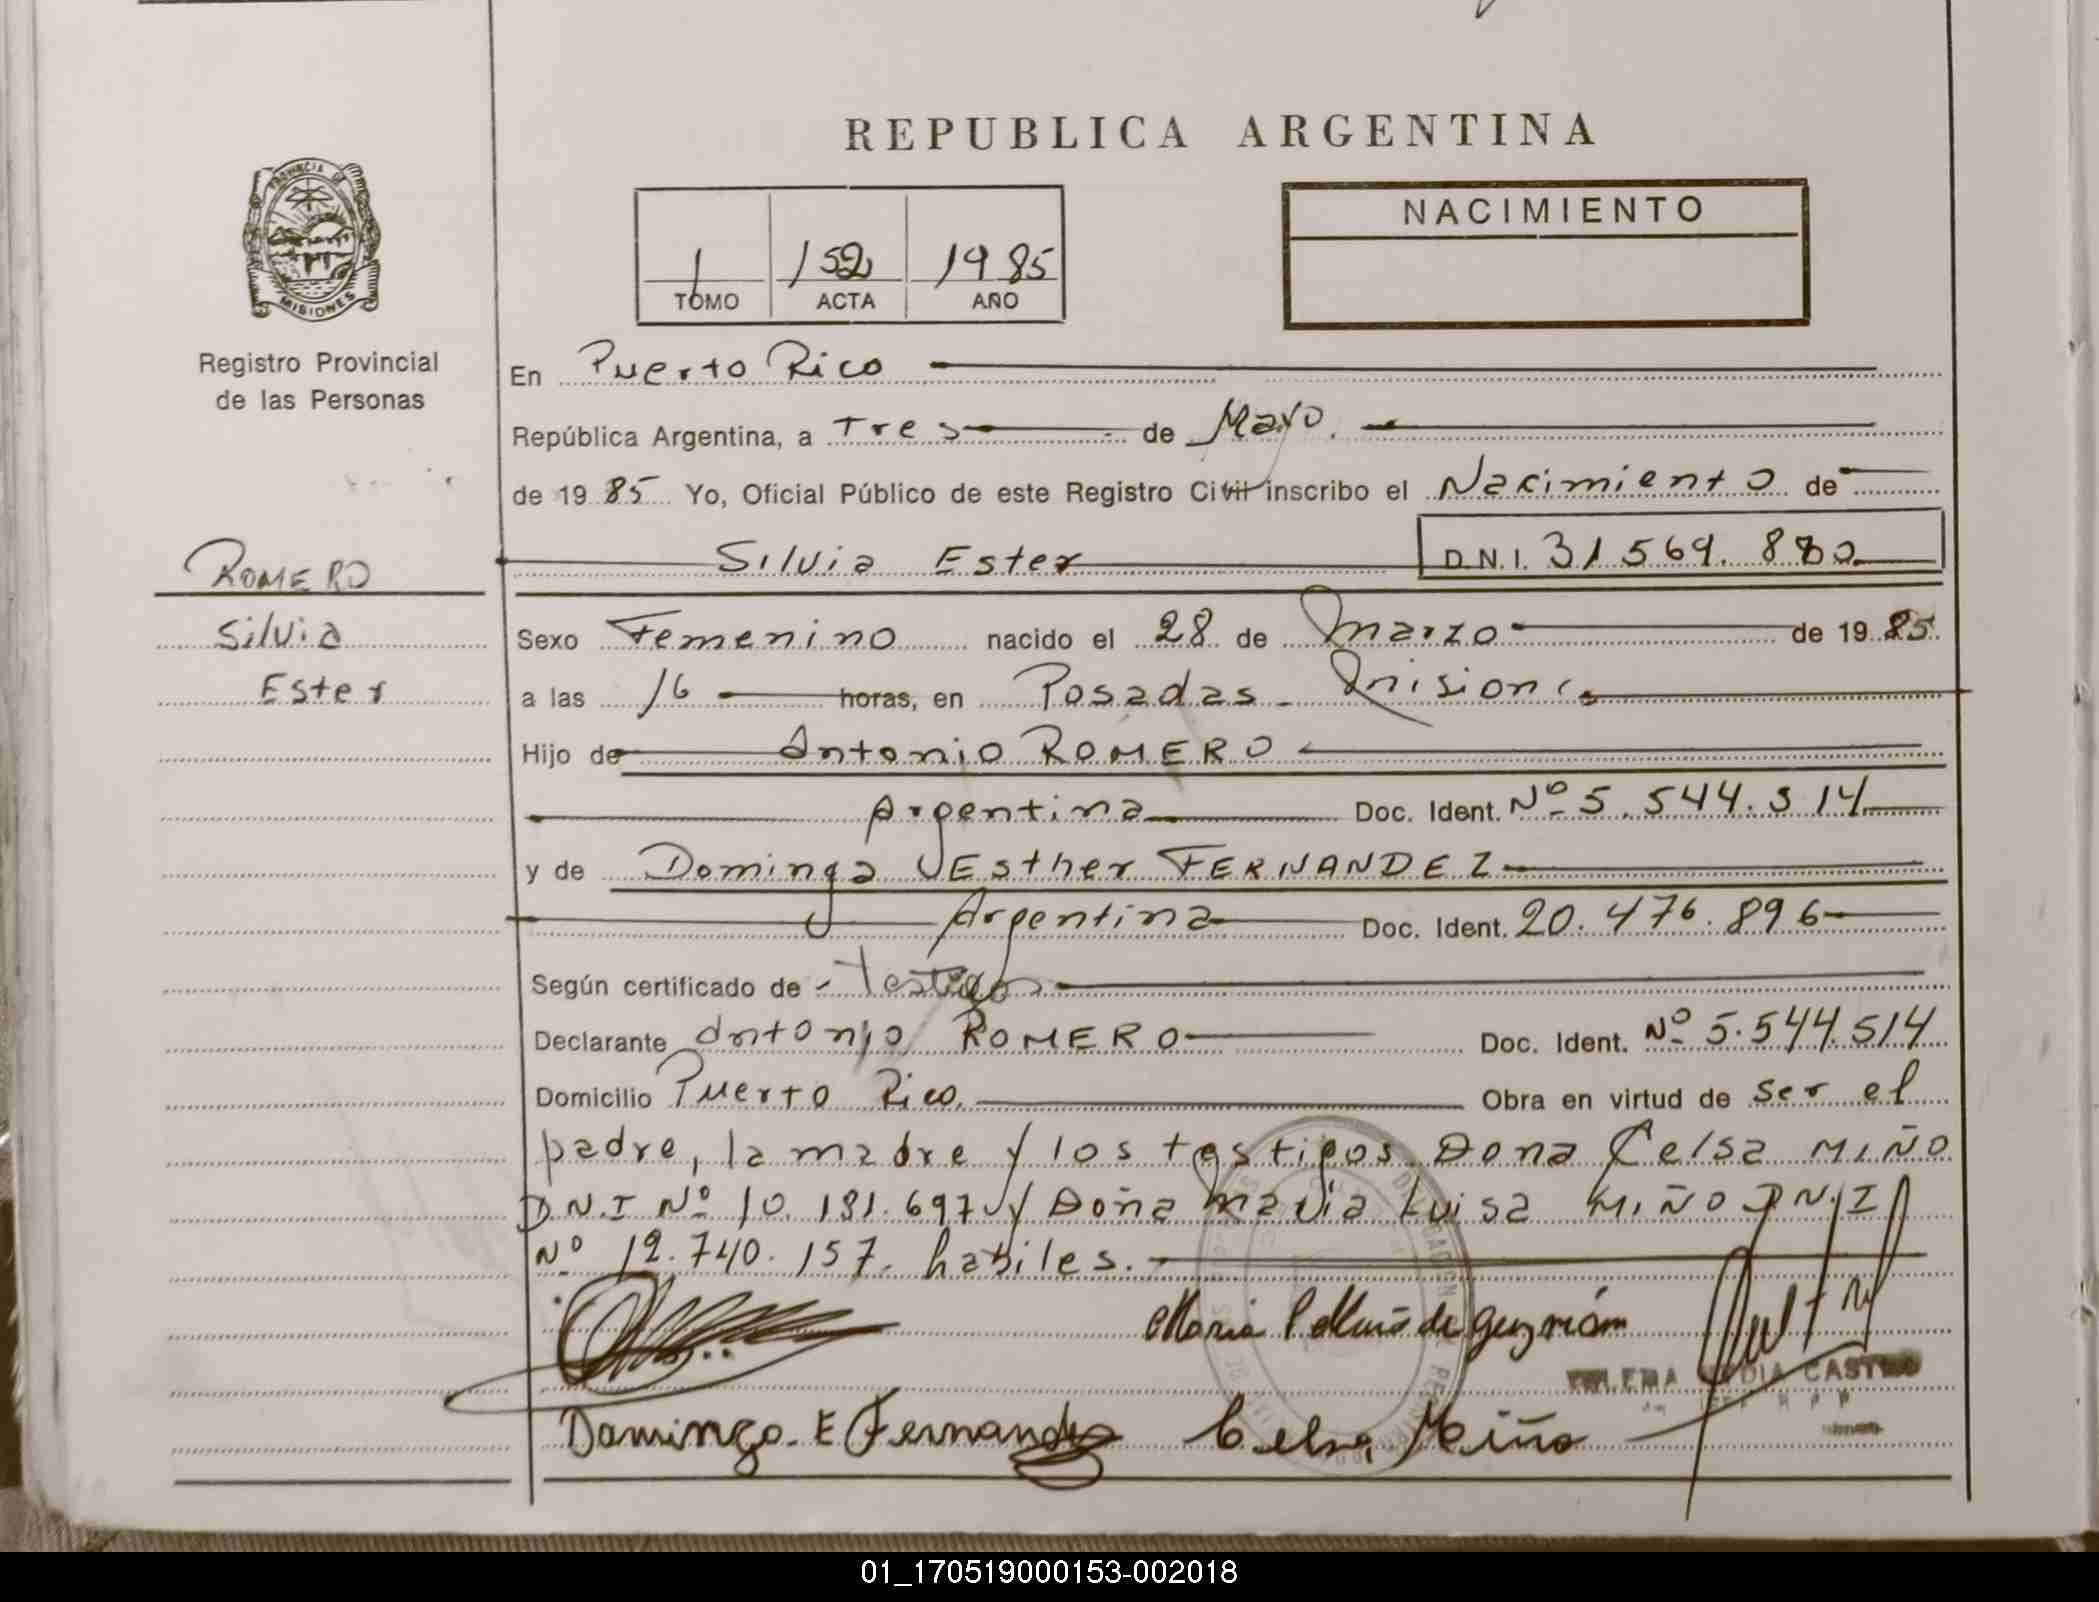 REPUBLICA ARGENTINA
PROVINCIA DE
MISIONES
Registro Provincial
de las Personas
1 152 1985
TOMO ACTA AÑO
NACIMIENTO
En Puerto Rico
República Argentina, a Tres de Mayo.
de 19 85 Yo, Oficial Público de este Registro Civil inscribo el Nacimiento de
Silvia Ester D.N.I. 31.569.880
ROMERO
Silvia
Ester
Sexo Femenino nacido el 28 de Marzo de 19 85
a las 16 horas, en Posadas - Misiones
Hijo de Antonio ROMERO
Argentina Doc. Ident. Nº 5.544.514
y de Dominga Esther FERNANDEZ
Argentina Doc. Ident. 20.476.896
Según certificado de - Testigos
Declarante Antonio ROMERO Doc. Ident. Nº 5.544.514
Domicilio Puerto Rico. Obra en virtud de ser el
padre, la madre y los testigos Dona Celsa MIÑO
D.N.I Nº 10.181.697 y Doña Maria Luisa MIÑO D.N.I
Nº 12.740.157. habiles.
Maria L Miño de Guzmán
CASTRO
Dominga. E Fernandez Celsa Miño
01_170519000153-002018